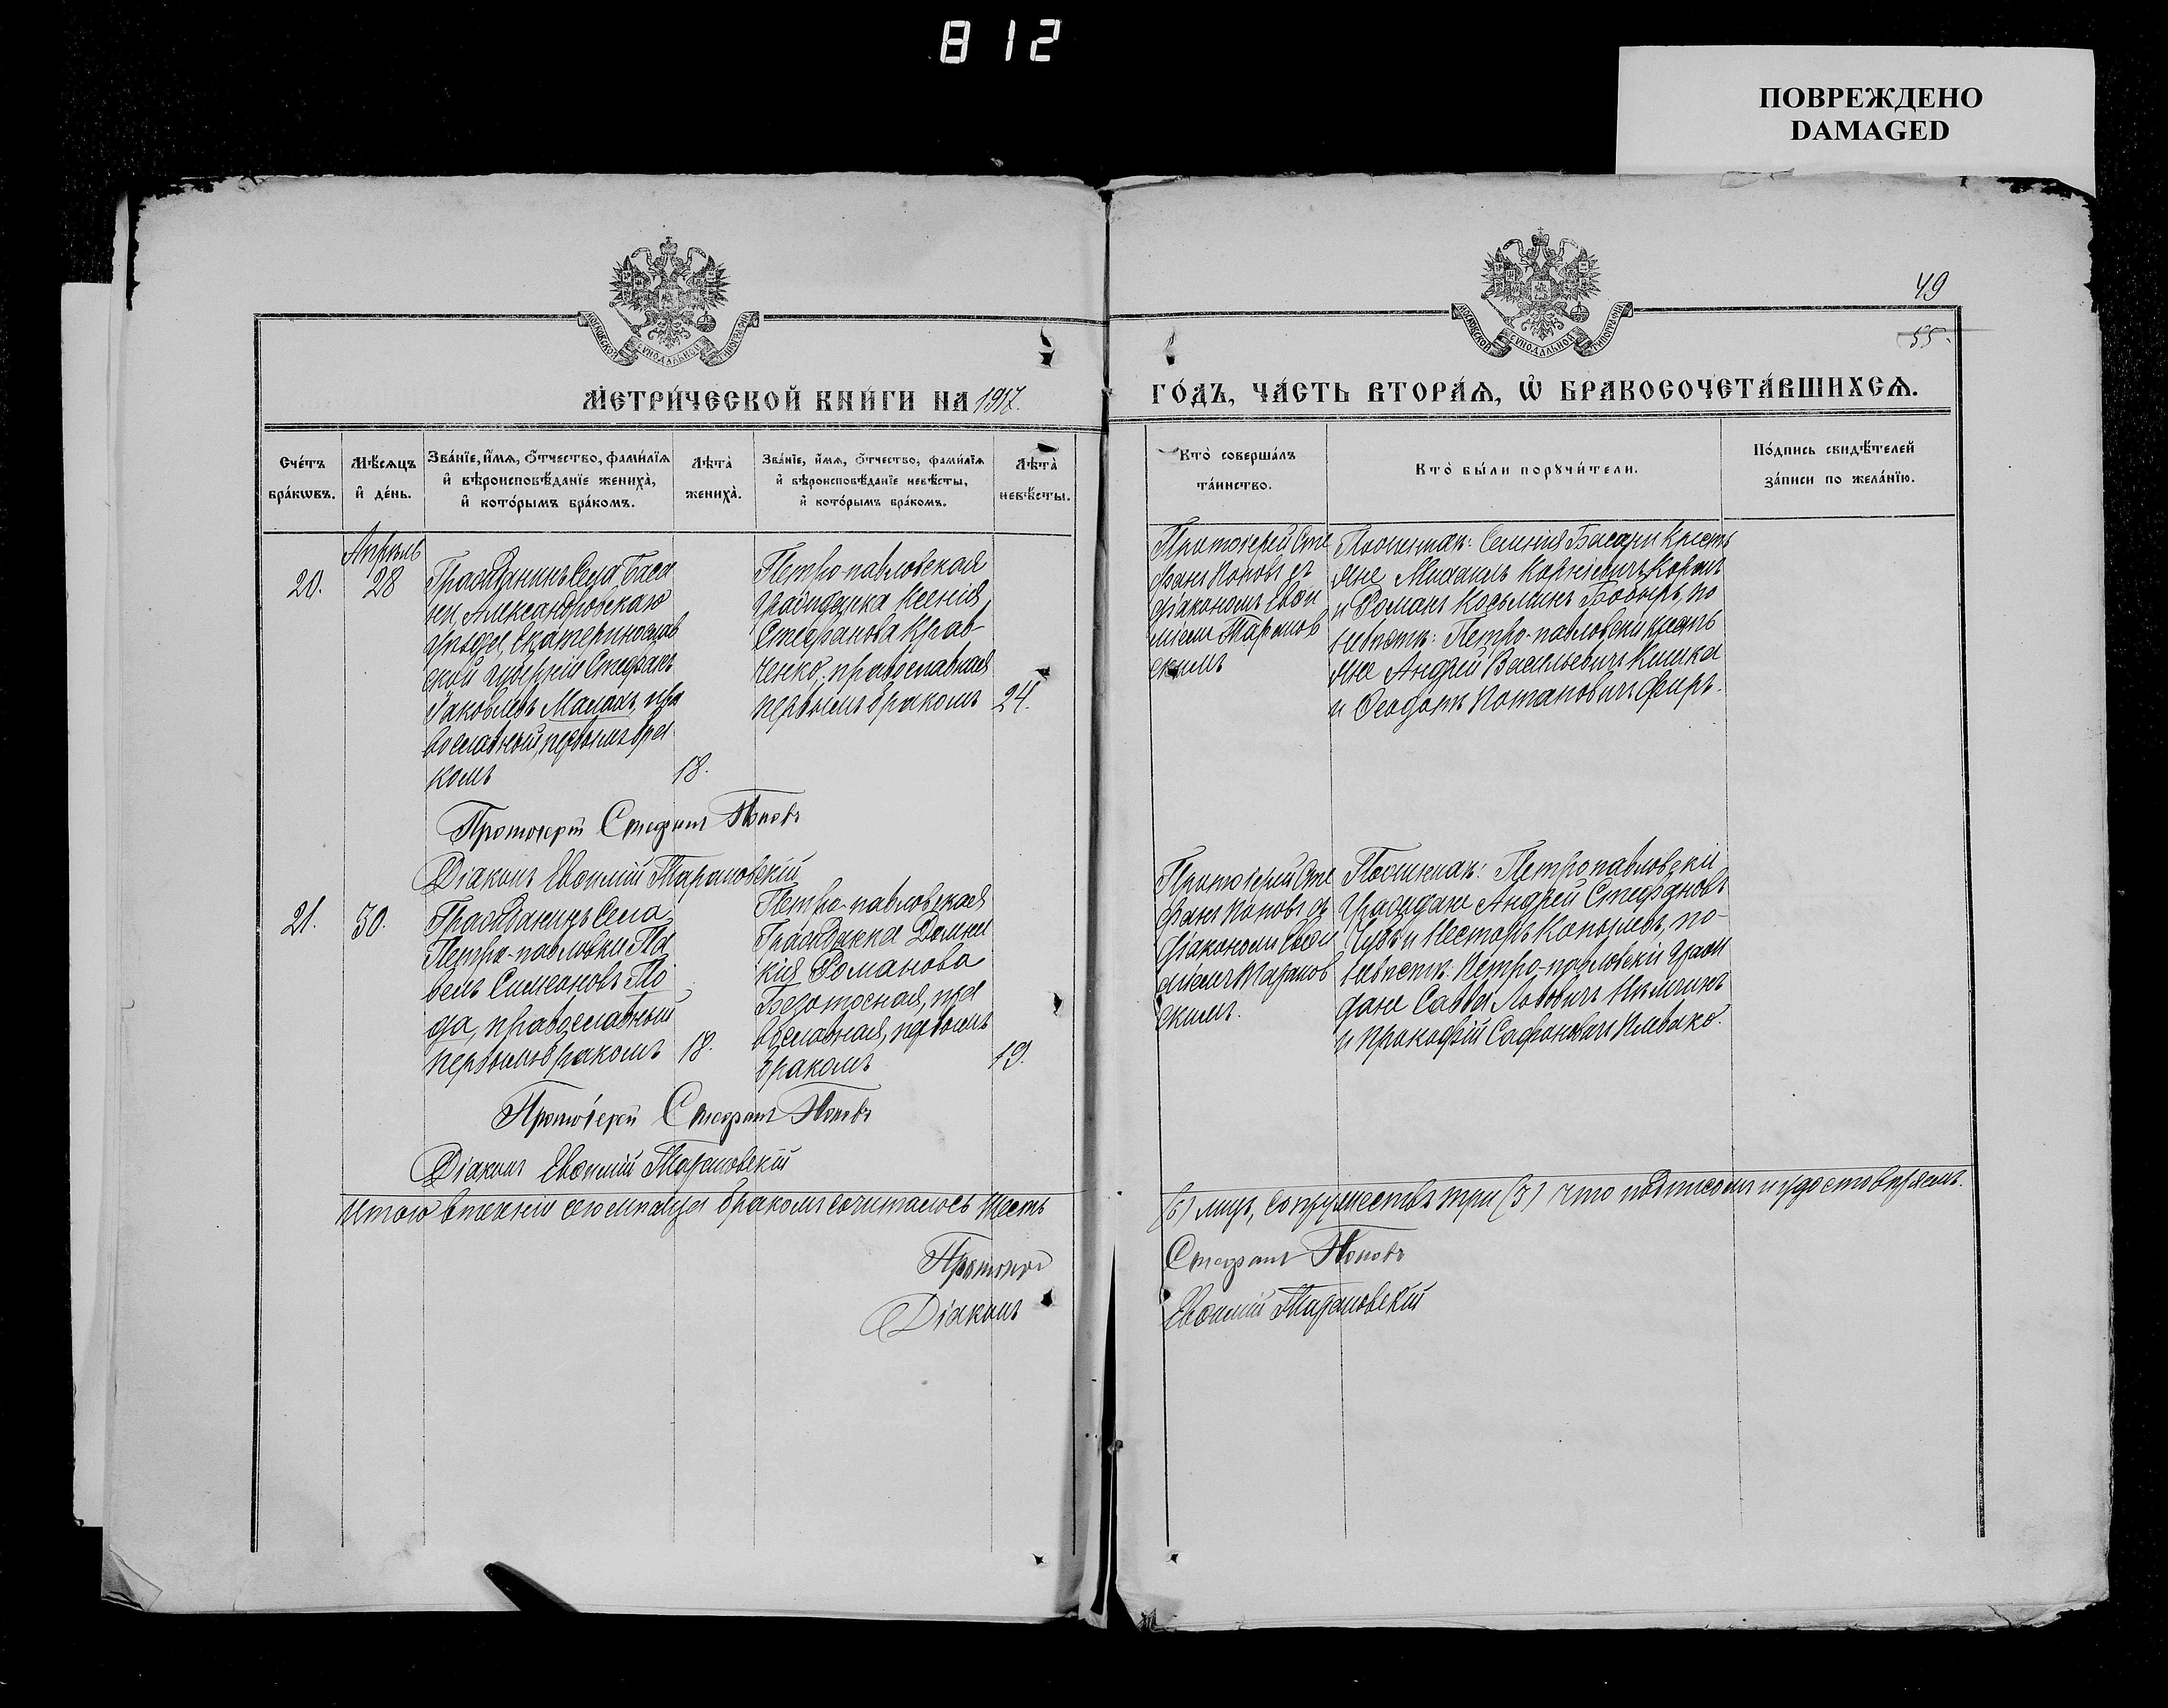 812
ПОВРЕЖДЕНО
DAMAGED
МОСКОВСКОЙ СѴНОДАЛЬНОЙ ТИПОГРАФІИ
МОСКОВСКОЙ СѴНОДАЛЬНОЙ ТИПОГРАФІИ
49
55.
МЕТРИ́ЧЕСКОЙ КНИ́ГИ НА 1917.
ГО́ДЪ, ЧА́СТЬ ВТОРА́Я, Ѡ БРАКОСОЧЕТА́ВШИХСѦ.
Сче́тъ
бра́кѡвъ.
Мѣ́сѧцъ
и҆ де́нь.
Зва́нїе, и҆́мѧ, ѻ҆́тчество, фами́лїѧ
и҆ вѣроисповѣ́данїе женихà,
и҆ кото́рымъ бра́комъ.
Лѣтà
женихà.
Зва́нїе, и҆́мѧ, ѻ҆́тчество, фами́лїѧ
и҆ вѣроисповѣ́данїе невѣ́сты,
и҆ кото́рымъ бра́комъ.
Лѣтà
невѣ́сты.
Ктò соверша́лъ
та́инство.
Ктò бы́ли порꙋчи́тели.
По́дпись свидѣ́телей
за́писи по жела́нїю.
Апрель
20.
28
Гражданинъ Села Баса
ни, Александровскаго
уезда, Екатеринослав
ской губерніи Стефанъ
Іаковлевъ Малахъ, пра
вославный, первымъ бра
комъ
18.
Петро-павловская
гражданка Ксенія
Стефанова Крав-
ченко, православная
первымъ бракомъ
24.
Протоіерей Сте
фанъ Поповъ съ
діакономъ Евѳи
міемъ Таранов
скимъ
По женихѣ: Селенія Басани кресть
яне Михаилъ Корніевичъ
и Романъ Козьминъ Бобырь, по
невѣстѣ: Петро-павловски кресть
яне Андрей Васильевичъ Кишка
и Ѳеодотъ Потаповичъ
Протоіерей Стефанъ Поповъ
Діаконъ Евѳимій Тарановскій
21.
30.
Гражданинъ Села
Петро-павловки Па
велъ Симеоновъ
да, православный
первымъ бракомъ
18.
Петро-павловская
Гражданка Домни
кія Романова
Безотосная, пра
вославная, первымъ
бракомъ
19.
Протоіерей Сте
фанъ Поповъ съ
діакономъ Евѳи
міемъ Таранов
скимъ.
По женихѣ: Петропавловскіи
граждане Андрей Стефановъ
и Несторъ Копыловъ, по-
невѣстѣ: Петро-павловскіи граж
дане Савва
и Прокофій Софоновичъ Пливако.
Протоіерей Стефанъ Поповъ
Діаконъ Евѳимій Тарановскій
Итого втеченіи сего месяца бракомъ сочиталось шесть
(6) лицъ, супружествъ три (3) что подписомъ и удостовѣряемъ.
Протоіерей Стефанъ Поповъ
Діаконъ Евѳимій Тарановскій